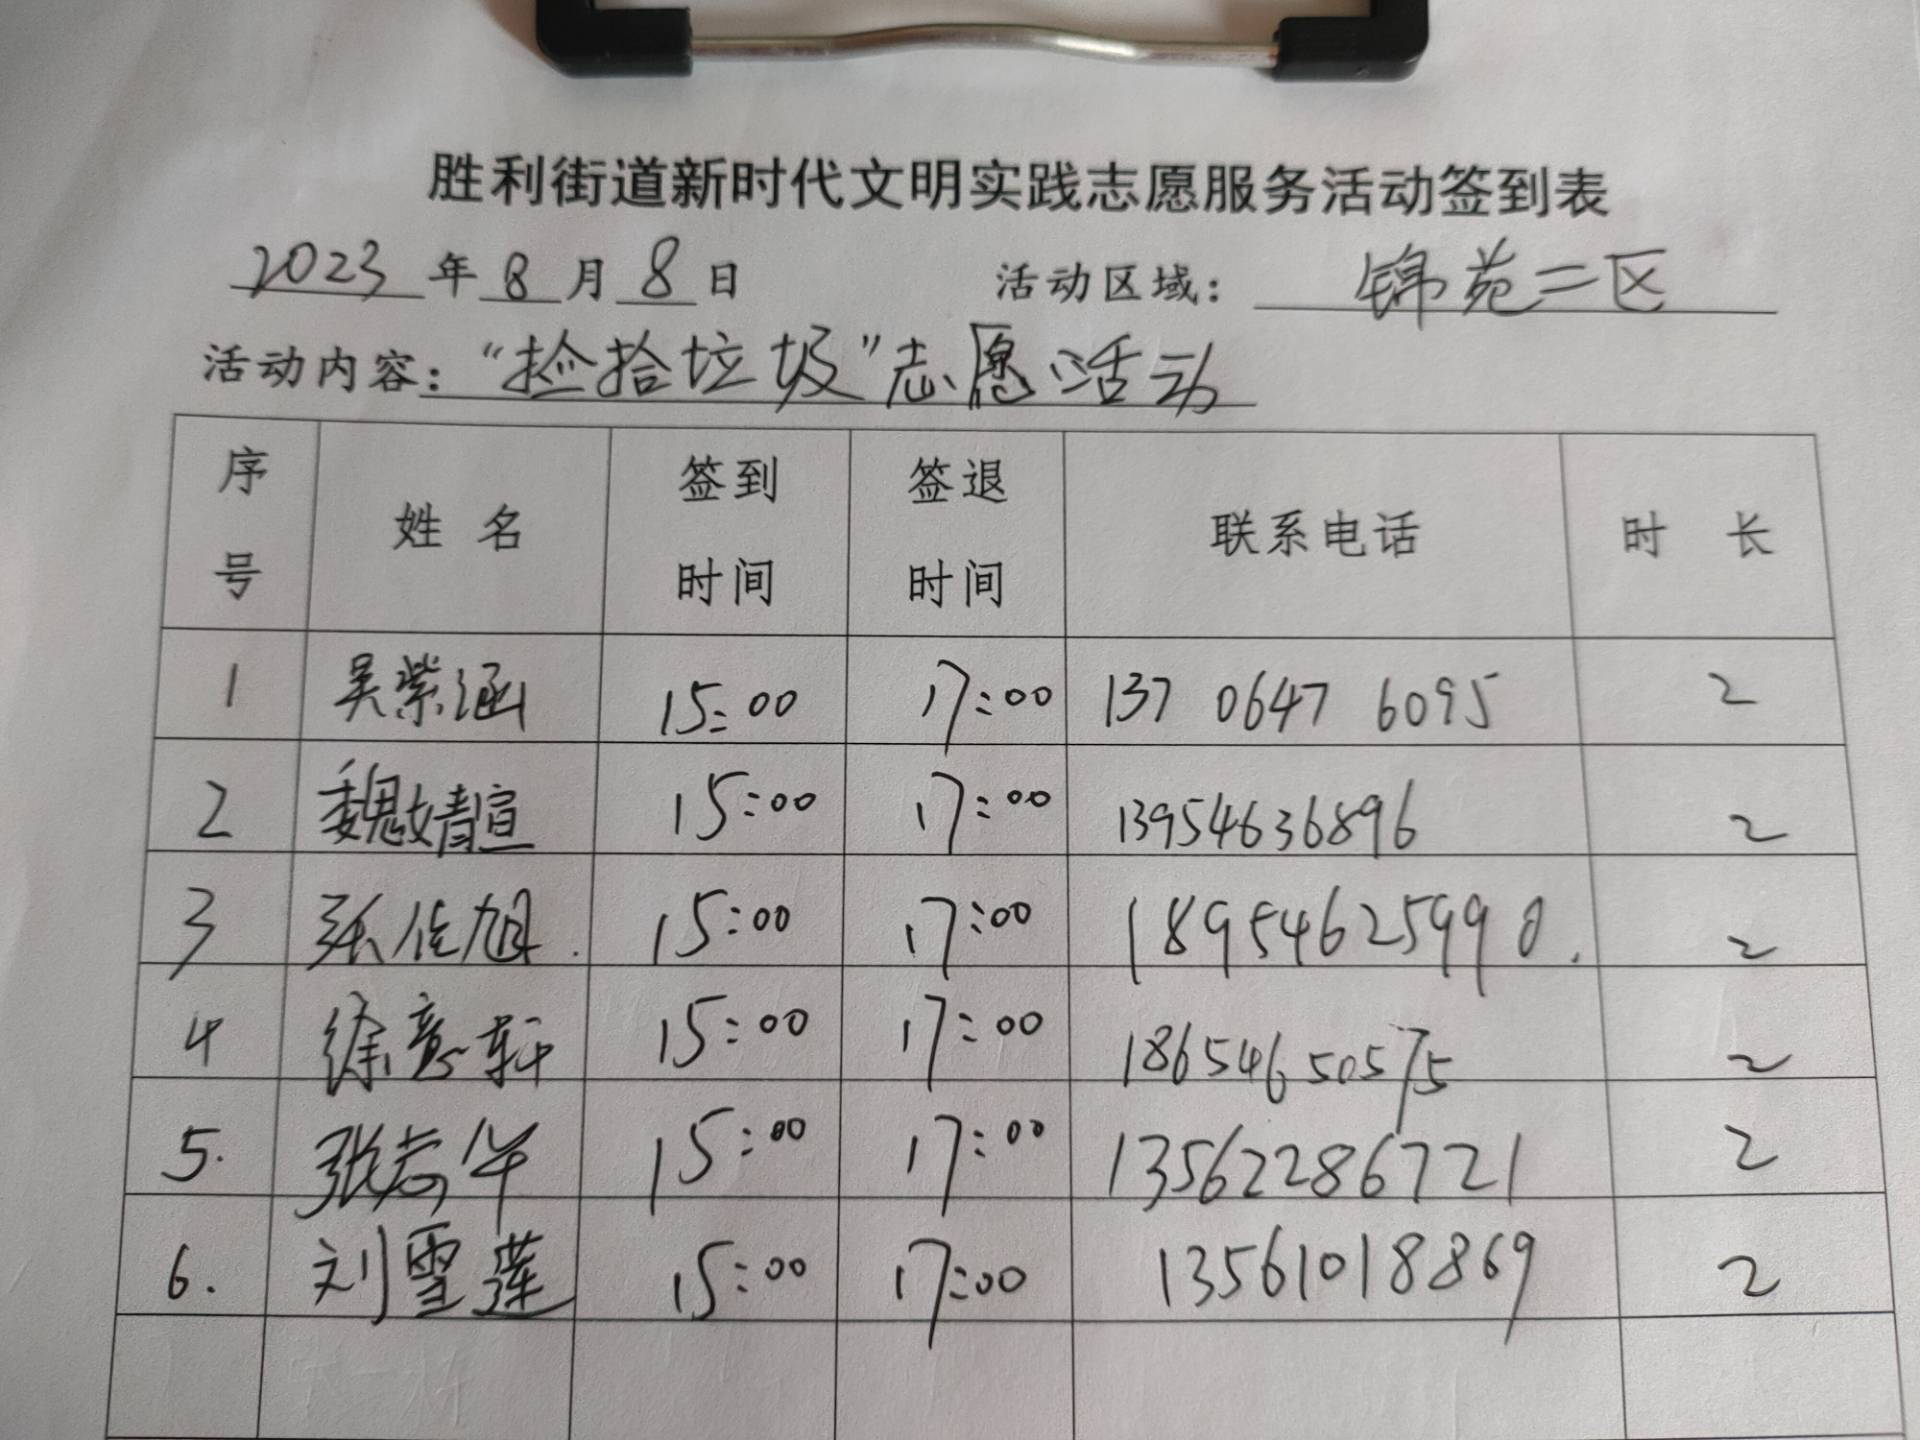 胜利街道新时代文明实践志愿服务活动签到表
2023 年 8 月 8 日 活动区域: 锦苑二区
活动内容: “捡拾垃圾”志愿活动
序号 姓名 签到时间 签退时间 联系电话 时长
1 吴紫涵 15:00 17:00 137 0647 6095 2
2 魏婧宣 15:00 17:00 13954636896 2
3 张佳旭. 15:00 17:00 18954625990. 2
4 徐意轩 15:00 17:00 18654650575 2
5. 张志华 15:00 17:00 13562286721 2
6. 刘雪莲 15:00 17:00 13561018869 2